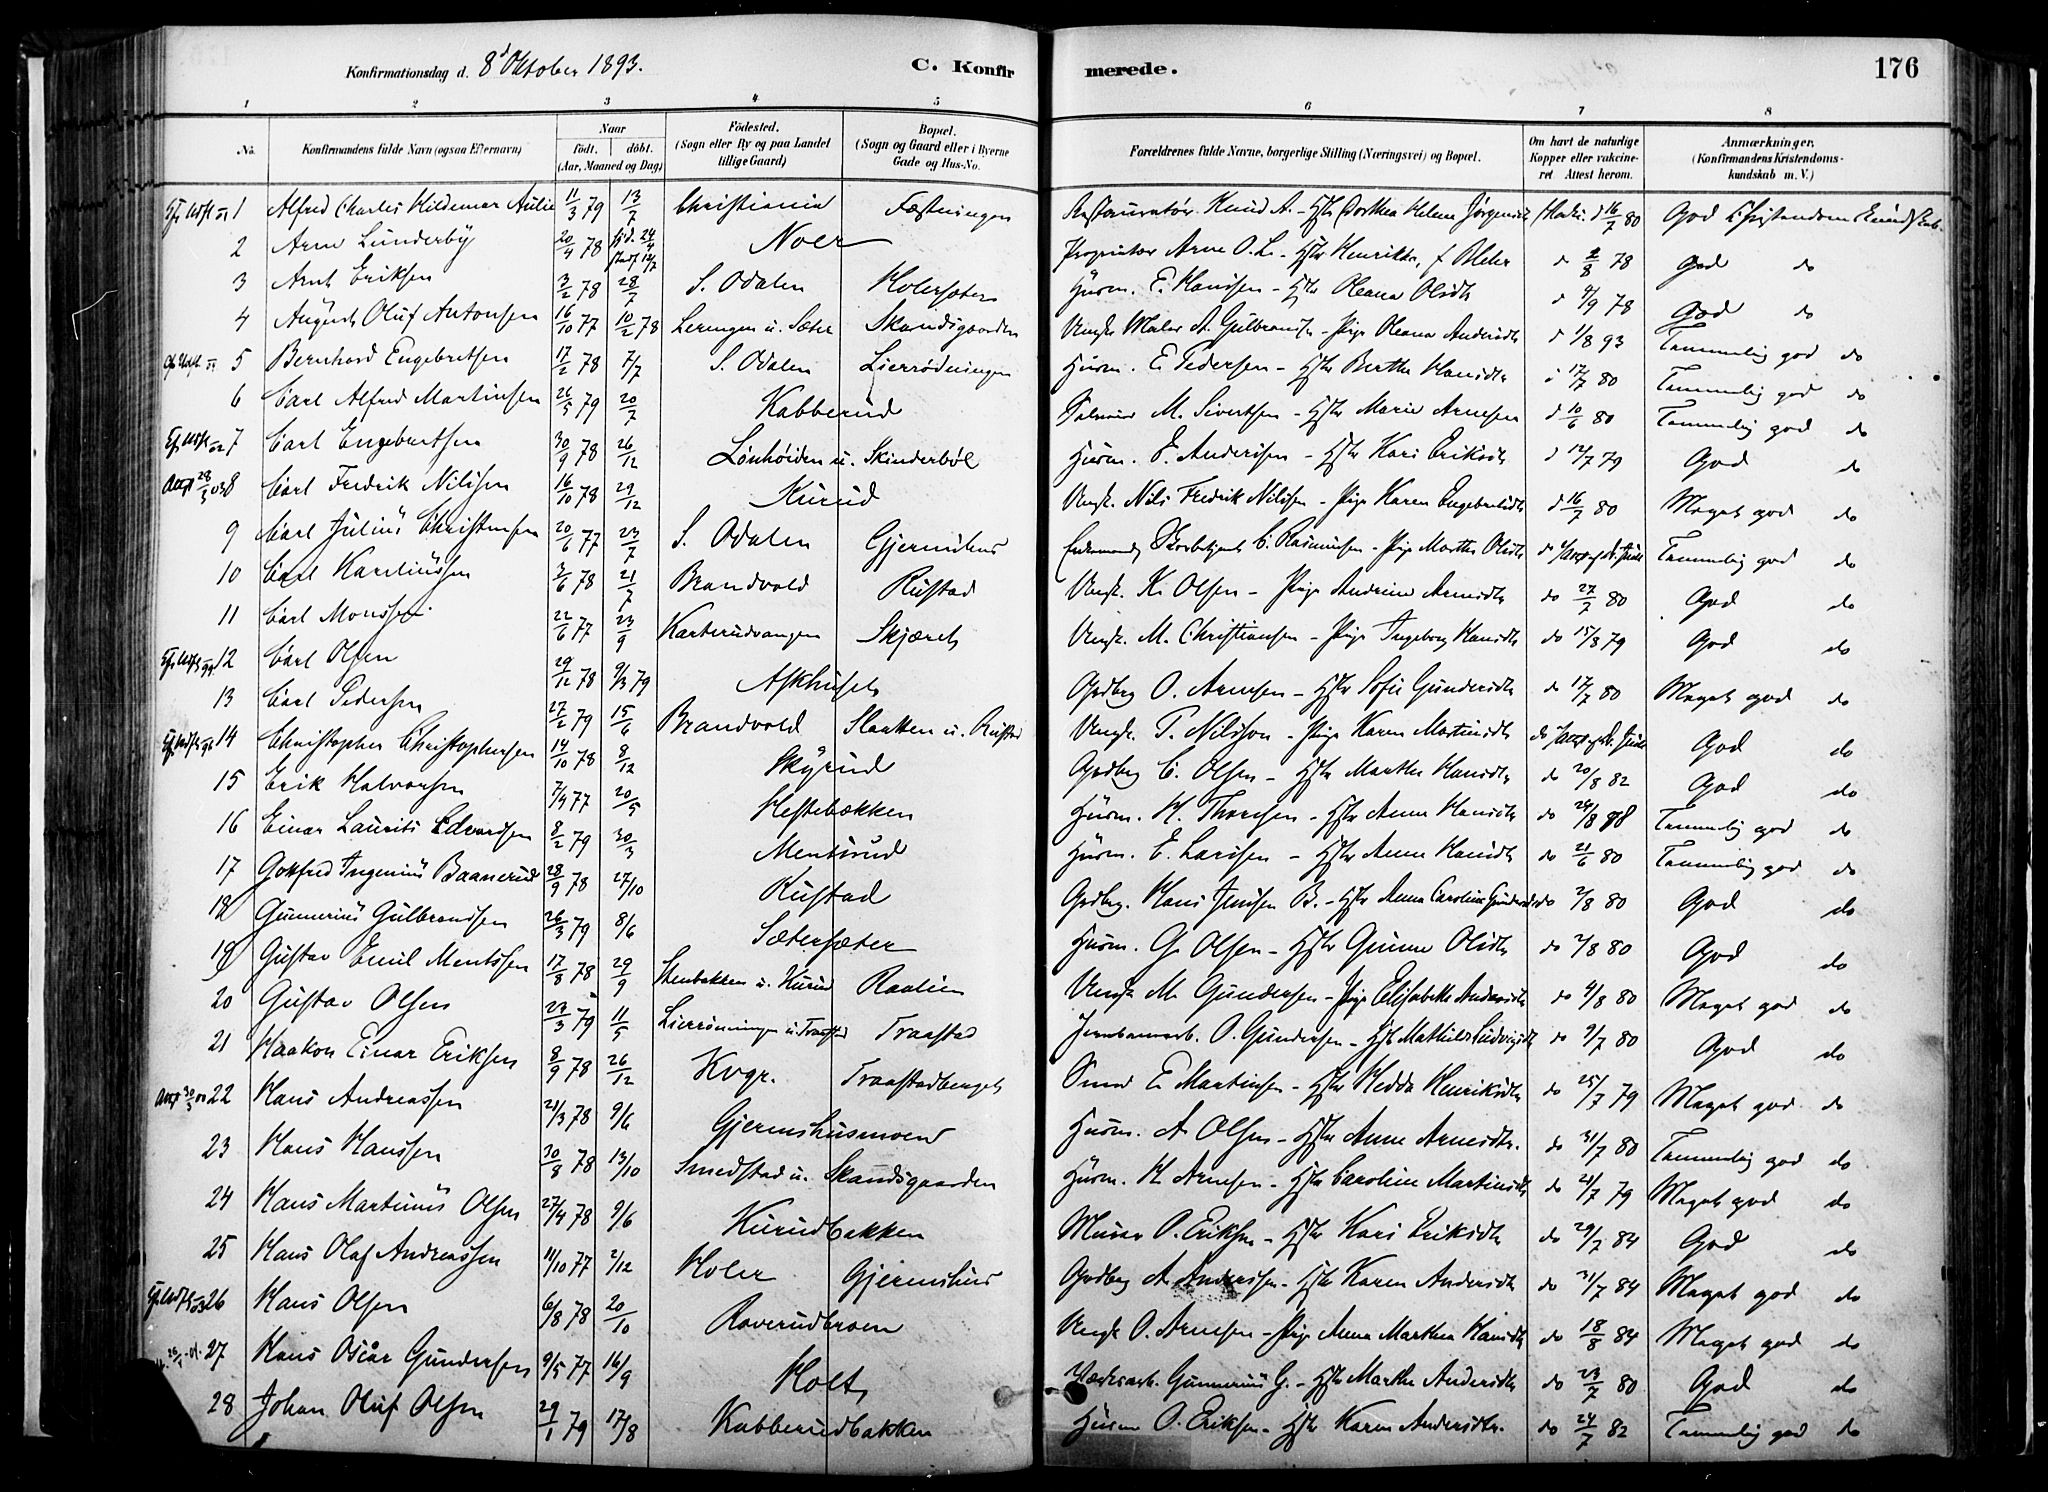 Konfirmationsdag d. 8d Oktober 1893. C. Konfir merede. 176
1 2 3 4 5 6 7 8
No. Konfirmandens fulde Navn (ogsaa Efternavn) Naar født. døbt. (Aar, Maaned og Dag) Födested. (Sogn eller By og paa Landet tillige Gaard) Bopæl. (Sogn og Gaard eller i Byerne Gade og Hus-No. Forældrenes fulde Navne, borgerlige Stilling (Næringsvei) og Bopæl. Om havt de naturlige Kopper eller vakcineret Attest herom. Anmærkninger. (Konfirmandens Kristendomskundskab m. V.)
1 Alfred Charles Hildemar Aulie 11/3 79 13/7 Christiania Fæstningen Restauratør Knud A. - Hstr Dorthea Helene Jörgensdt 16/7 80 God Christendomskundskab.
2 Arne Lunderby 20/4 78 24/4 Noer Proprietær Arne O. L. - Hstr Henrikke f. Meler d 2/8 78 God do
3 Arnt Eriksen 3/2 78 28/7 S. Odalen Holersæter Husm. E. Hansen - Hstr Oleana Olsdt d 4/9 78 God do
4 August Oluf Antonsen 16/10 77 10/2 78 Leringen u. Sæter Skandsgaarden Ungk. Maler A. Gulbrandsen - Pige Oleana Andersdt d 1/8 93 Temmelig god do
5 Bernhard Engebretsen 17/2 78 7/7 S. Odalen Lierrødningen Husm. E. Pedersen - Hstr Berthe Hansdt d 17/7 80 Temmelig god do
6 Carl Alfred Martinsen 26/5 79 20/7 Kabberud M. Sivertsen - Hstr Marie Arnesen d 10/6 80 Temmelig god do
7 Carl Engebretsen 30/9 78 26/12 Lønhøiden u. Skinderböl Husm. E. Andersen - Hstr Kari Eriksdt d 12/7 79 God do
8 Carl Fredrik Nilssen 16/10 78 29/12 Kurud Ungk. Nils Fredrik Nilssen - Pige Karen Engebretsdt d 16/7 80 Meget god do
9 Carl Julius Christensen 20/6 77 23/7 S. Odalen Gjermshus C. Rasmussen - Pige Marthe Olsdt do Temmelig god do
10 Carl Kareliussen 3/6 78 21/7 Brandvold Rustad Ungk. K. Olsen - Pige Andrine Arnesdt do 27/7 80 God do
11 Carl Monssen 22/6 77 23/9 Karterudvangen Skjæret Ungk. M. Christiansen - Pige Ingeborg Hansdt do 15/8 79 God do
12 Carl Olsen 29/12 78 9/3 79 Askhuset Grdbrg O. Arnesen - Hstr Sofie Gundersdt do 17/7 80 Meget god do
13 Carl Pedersen 27/2 79 15/6 Brandvold Slaatten u. Rustad Ungk. P. Nilsson - Pige Karen Martinsdt do God do
14 Christopher Christophersen 14/10 78 8/12 Skyrud Grdbrg C. Olsen - Hstr Marthe Hansdt do 20/8 82 God do
15 Erik Halvorsen 7/4 77 20/5 Hestebækken Husm. H. Thoresen - Hstr Anne Hansdt do 24/8 88 Temmelig god do
16 Einar Laurits Edvardsen 8/2 79 30/3 Mentsrud Husm. E. Larsen - Hstr Anne Hansdt do 21/6 80 Temmelig god do
17 Gotfred Ingenius Baanerud 28/9 78 27/10 Rustad Grdbrg. Hans Jensen B. - Hstr Anna Caroline Gundersdt do 2/8 80 God do
18 Gunnerius Gulbrandsen 26/3 79 8/6 Sætersæter Husm. G. Olsen - Hstr Gunne Olsdt do 2/8 80 God do
19 Gustav Emil Mentssen 17/8 78 29/9 Stenbakken u. Kurud Raalien Ungk M. Gundersen - Pige Elisabeth Andersdt do 4/8 80 Meget god do
20 Gustav Olsen 23/3 79 11/5 Lierrönningen u. Traastad Traastad Jernbanearb. O. Gundersen - Hstr Mathilde Ludvigsdt do 9/7 80 God do
21 Haakon Einar Eriksen 8/9 78 26/12 Kvgr. Traastadberget Smed E. Martinsen - Hstr Hedda Henriksdt do 25/7 79 Meget god do
22 Hans Andreassen 21/3 78 9/6 Gjermshusmoen Husm. A Olsen - Hstr Anne Arnesdt. do 31/7 80 Temmelig god do
23 Hans Hanssen 30/8 78 13/10 Smedstad u. Skandsgaarden Husm. H Arnesen - Hstr Caroline Martinsdt do 21/7 79 Meget god do
24 Hans Martinius Olsen 27/4 78 9/6 Kurudbakken Murer O. Eriksen - Hstr Kari Eriksdt do 29/7 84 God do
25 Hans Olaf Andreassen 11/10 77 2/12 Holer Gjermshus Grdbrg A Anderssen - Hstr Karen Andersdt do 31/7 84 Meget god do
26 Hans Olsen 6/8 78 20/10 Roverudbroen Ungk O. Arnesen - Pige Anne Marthea Hansdt do 18/8 84 Meget god do
27 Hans Oscar Gundersen 9/5 77 16/9 Holt Værksarb. Gunnerius G. - Hstr Marthe Andersdt do 23/7 80 God do
28 Johan Oluf Olsen 29/1 79 17/8 Kabberudbakken Husm O. Eriksen - Hstr Karen Andersdtr. do 24/7 82 Temmelig god do